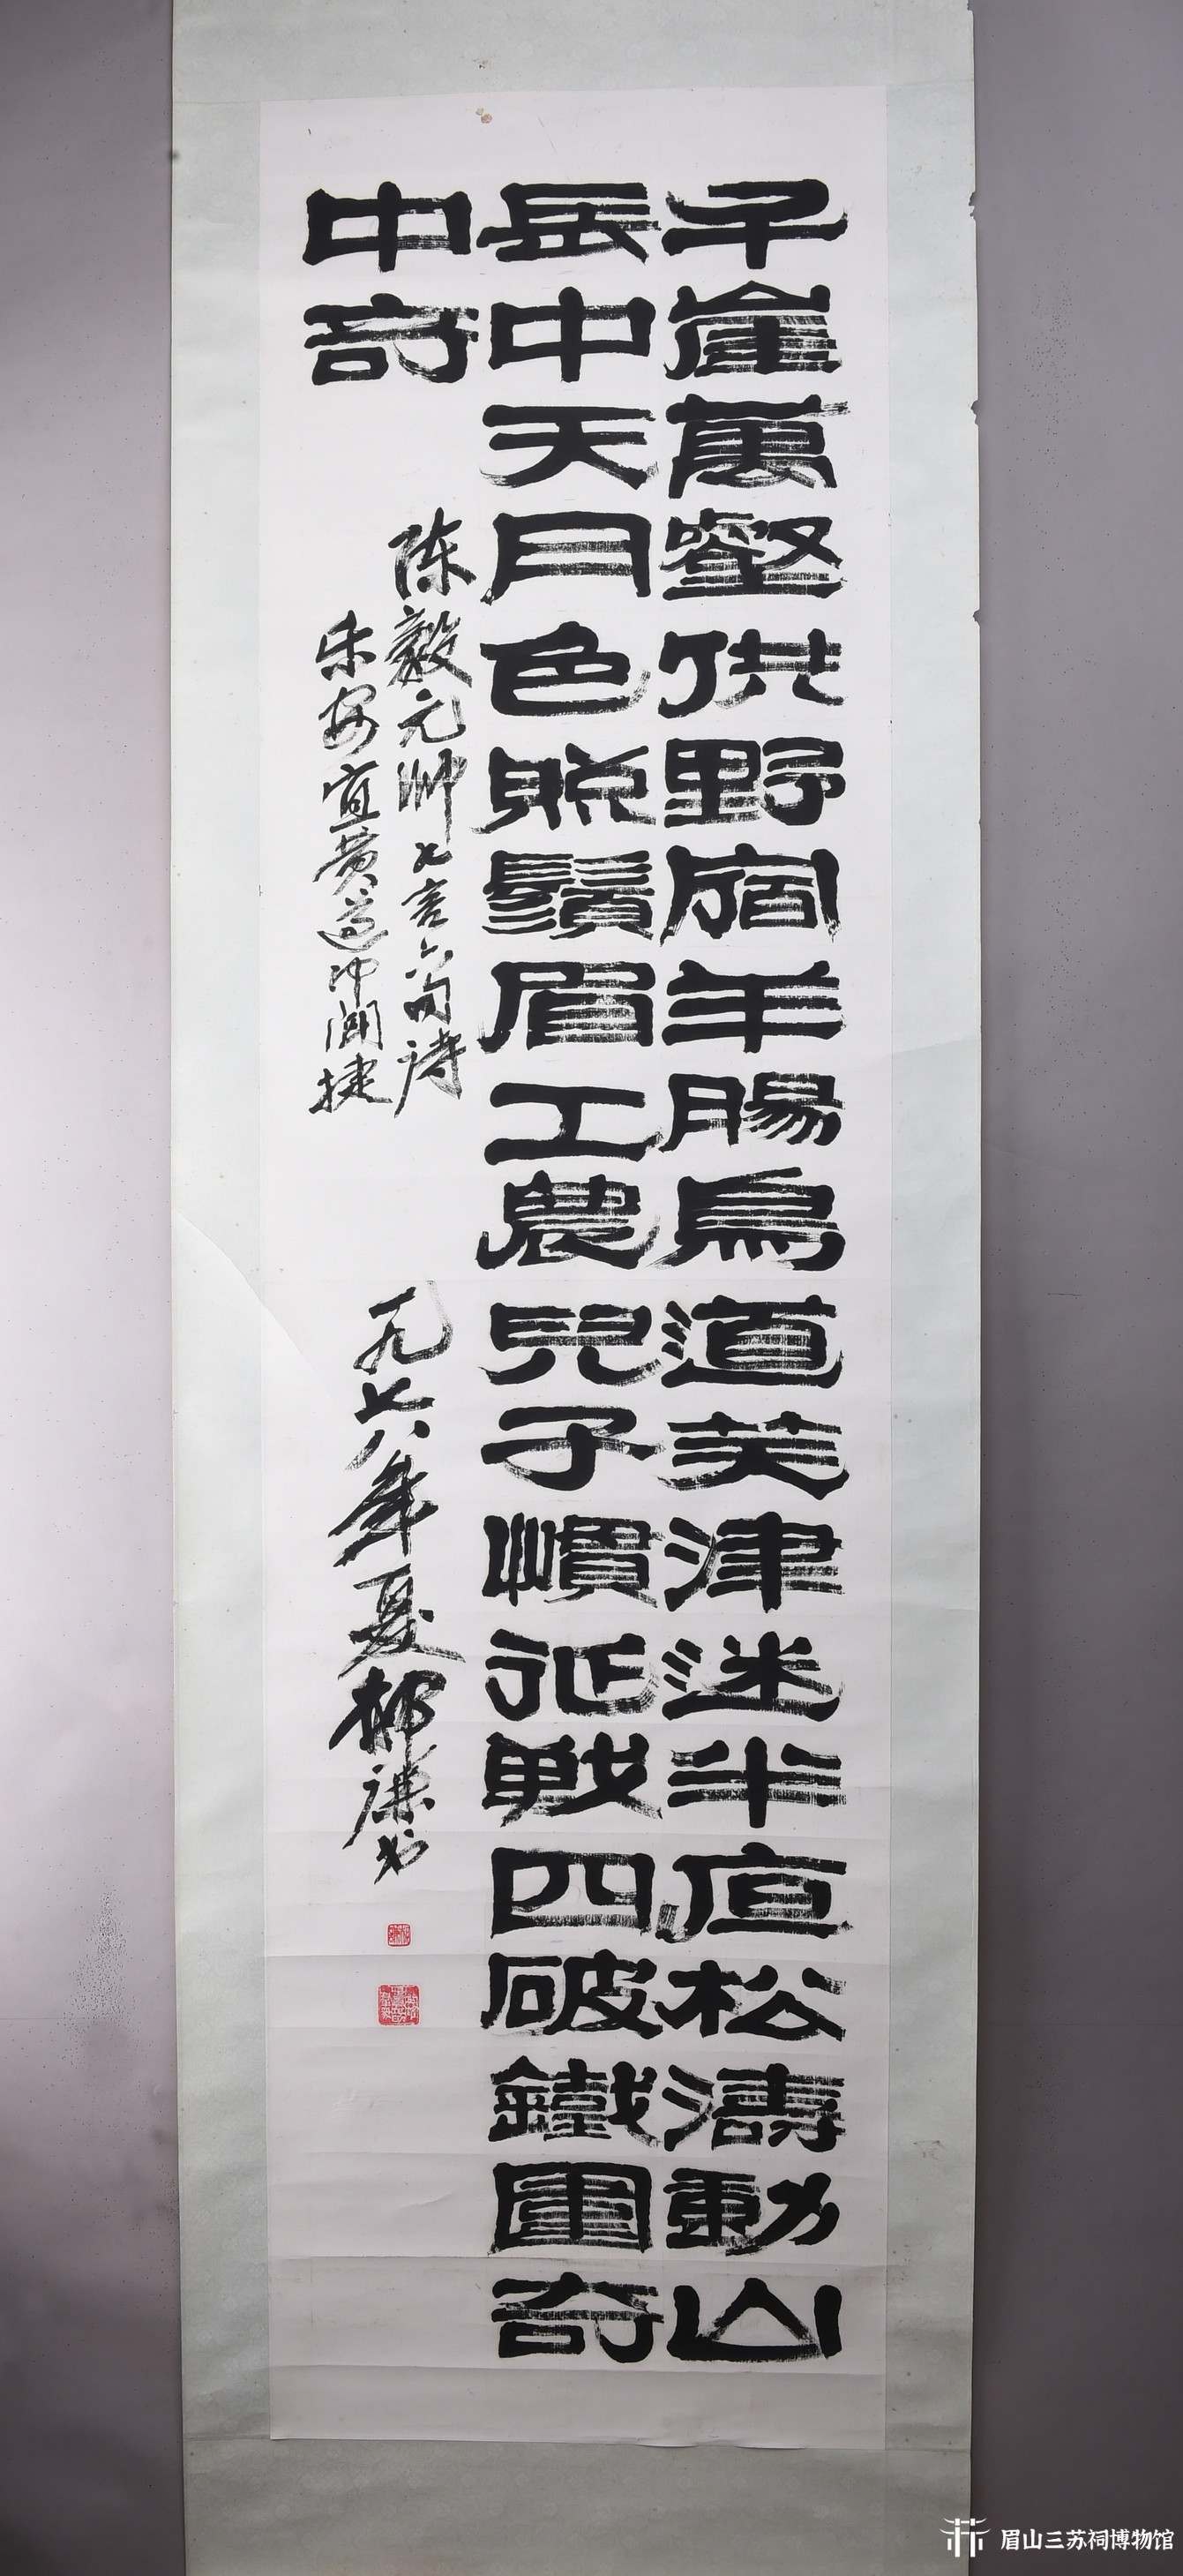 千崖萬壑供野宿羊腸鳥道笑津迷半亱松濤動山
岳中天月色照鬚眉工農兒子慣征戰四破鐵圍奇
中奇
陈毅元帅七言六句诗
乐安宜黄道中闻捷
一九七八年夏 书
眉山三苏祠博物馆